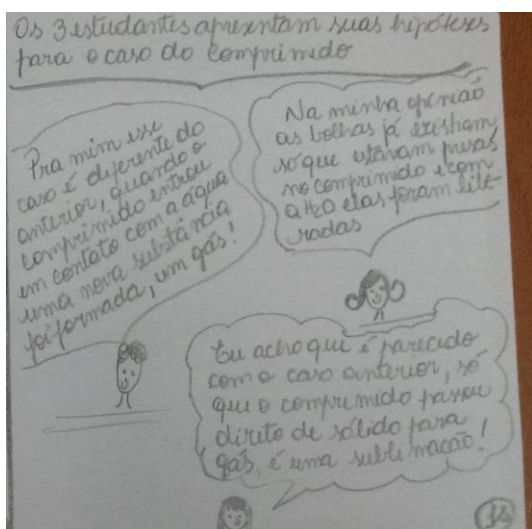 Os 3 estudantes apresentam suas hipóteses
para o caso do comprimido
Pra mim esse
caso é diferente do
anterior, quando o
comprimido entrou
em contato com a água
uma nova substância
foi formada, um gás!
Na minha opinião
as bolhas já existiam
só que estavam presas
no comprimido e com
a H2O elas foram libe-
radas
Eu acho que é parecido
com o caso anterior, só
que o comprimido passou
direto de sólido para
gás, é uma sublimação!